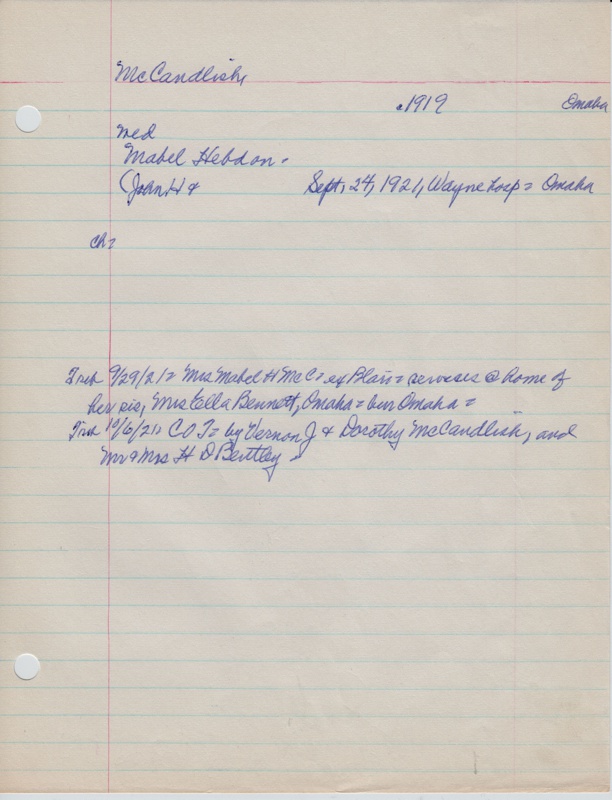 McCandlish
c1919 Omaha
med
Mabel Hebdon.
(John H & Sept, 24, 1921, Wayne hosp = Omaha
ch:
9/29/21 = Mrs Mabel H McC = ex Blair = services @ home of
her sis, Mrs Ella Bennett, Omaha = bur Omaha =
10/6/21: C O T = by Vernon J & Dorothy McCandlish, and
Mr & Mrs H D Bentley